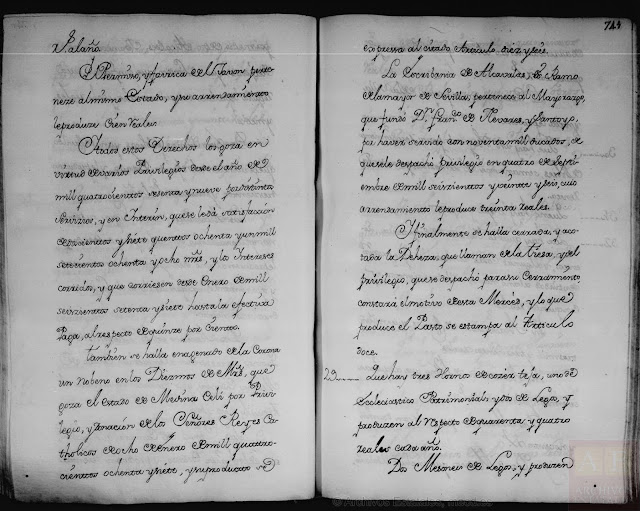 al año.
El Permiso, y fabrica de el Jaron perte-
neze al mismo Estado, y su arrendamiento
le produze Cien reales.
A todos estos Derechos los goza en
virtud de varios Privilegios desde el año de
mill quatrocientos setenta y nueve por distintos
servizios, y en Interin, que se le dá satisfacion
de doscientos y siete quentos ochenta y un mill
setecientos ochenta y ocho mrs, y los Intereses
corridos, y que corriesen desde Enero de mill
seiszientos setenta y siete hasta la efectiva
Paga, al respecto de quinze por Ciento.
Tambien se halla enagenado de la Corona
un Nobeno en los Diezmos de Mrs, que
goza el Estado de Medina Celi por Privi-
legio, y donacion de los Señores Reyes Ca-
tholicos de ocho de Henero de mill quattro-
cientos ochenta y siete, y su producto se
expressa al citado Articulo diez y seis.
La Escribania de Alcavalas, del ramo
de la mayor de Sevilla, pertenece al Mayorazgo,
que fundó Dn. Franco. de Nevares, y Santoyo,
por haver servido con noventa mill ducados, de
que se le despachó privilegio en quatro de Septi-
embre de mill seiszientos y treinta y seis, cuio
arrendamiento le produce treinta reales.
Y finalmente se halla cerrada, y aco-
tada la Deheza, que llaman de la tiesa, y del
privilegio, que se despachó para su Cerramiento,
constará el motivo de esta Merced, y lo que
produce el Pasto se estampa al Articulo
doce.
29 Que hai tres Hornos de cozer teja, uno de
Ecclesiastico Patrimonial, y dos de Legos, y
produzen al Respecto de quarenta y quatro
reales cada año.
Dos Mesones de Legos, y produzen